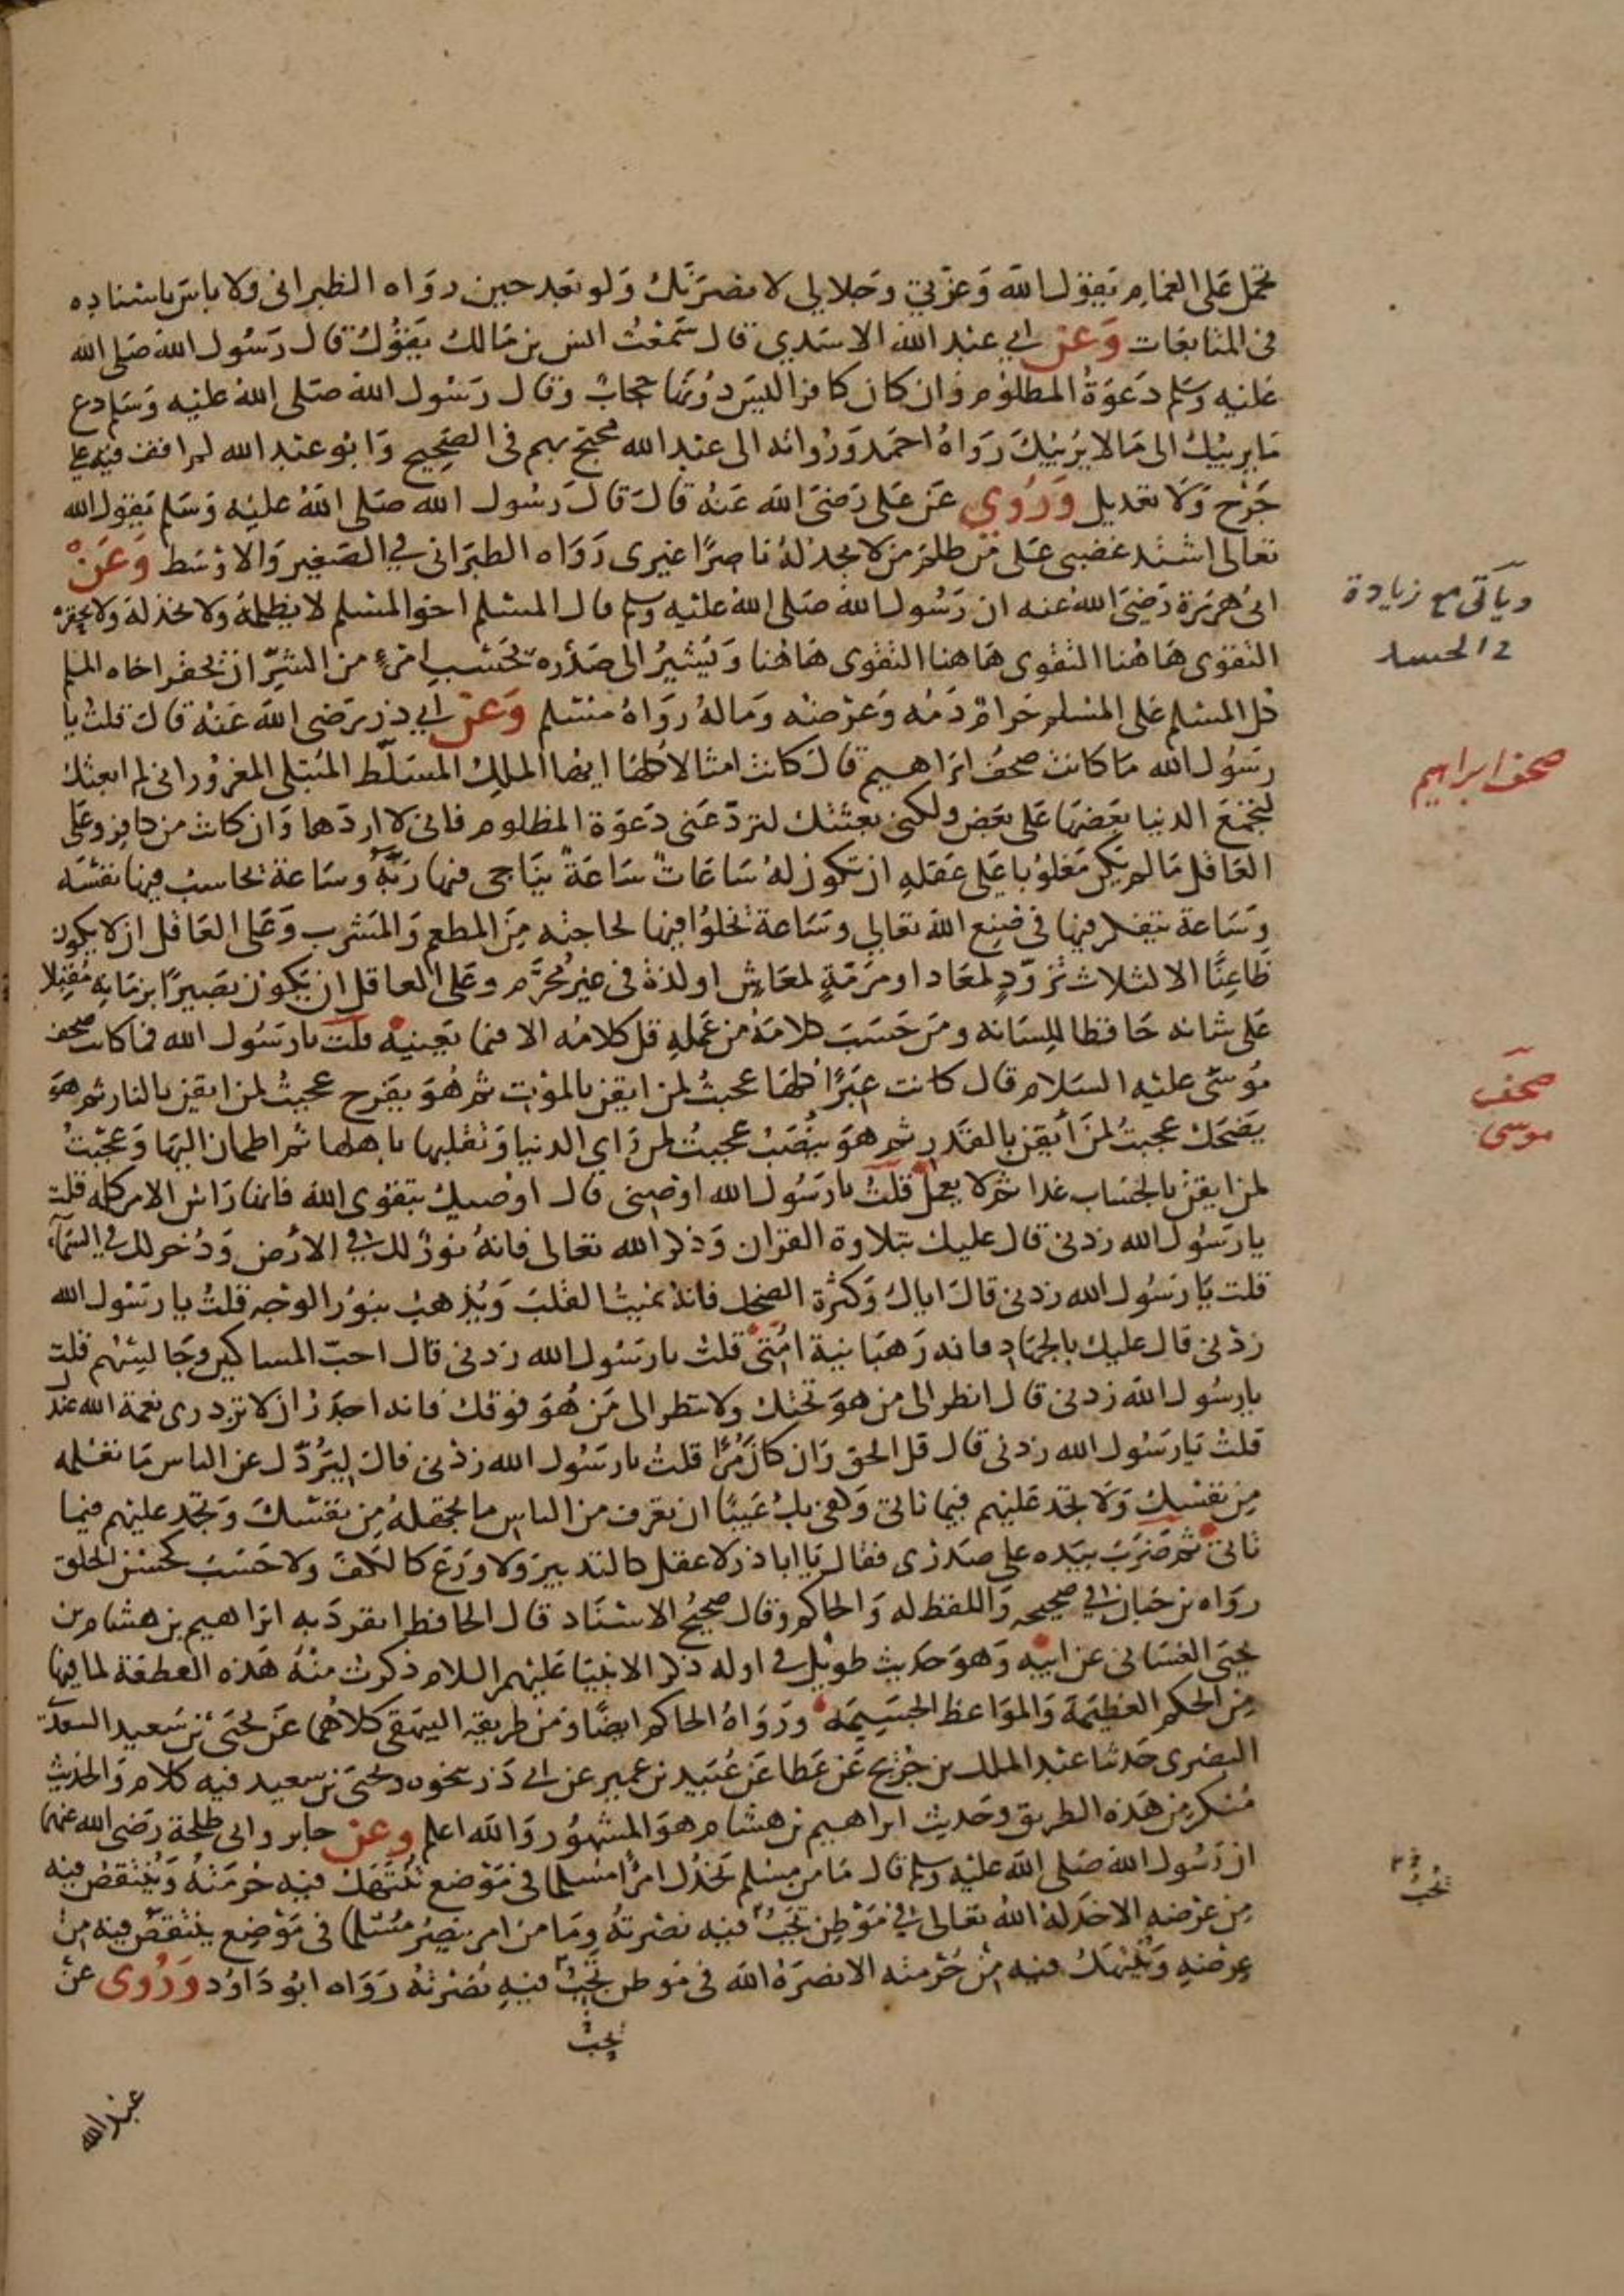 تحمل على الغمام يقول الله وعزتي وجلالي لانصرنك ولو بعد حين رواه الطبراني ولا باس باسناده
في المتابعات وعن ابي عبد الله الاسدي قال سمعت انس بن مالك يقول قال رسول الله صلى الله
عليه وسلم دعوة المظلوم وان كان كافرا ليس دونها حجاب وقال رسول الله صلى الله عليه وسلم دع
ما يريبك الى ما لا يريبك رواه احمد ورواته الى عبد الله محتج بهم في الصحيح وابو عبد الله لم اقف فيه على
جرح ولا تعديل وروي عن علي رضي الله عنه قال قال رسول الله صلى الله عليه وسلم يقول الله
تعالى اشتد غضبي على من ظلم من لا يجد له ناصرا غيري رواه الطبراني في الصغير والاوسط وعن
ابي هريرة رضي الله عنه ان رسول الله صلى الله عليه وسلم قال المسلم اخو المسلم لا يظلمه ولا يخذله ولا يحقره
التقوى هاهنا التقوى هاهنا التقوى هاهنا ويشير الى صدره بحسب امرئ من الشر ان يحقر اخاه المسلم
كل المسلم على المسلم حرام دمه وعرضه وماله رواه مسلم وعن ابي ذر رضي الله عنه قال قلت يا
رسول الله ما كانت صحف ابراهيم قال كانت امثالا كلها ايها الملك المسلط المبتلى المغرور اني لم ابعثك
لتجمع الدنيا بعضها على بعض ولكني بعثتك لترد عني دعوة المظلوم فاني لا اردها وان كانت من كافر وعلى
العاقل ما لم يكن مغلوبا على عقله ان تكون له ساعات ساعة يناجي فيها ربه وساعة يحاسب فيها نفسه
وساعة يتفكر فيها في صنع الله تعالى وساعة يخلوا فيها لحاجته من المطعم والمشرب وعلى العاقل ان لا يكون
ظاعنا الا لثلاث تزود لمعاد او مرمة لمعاش او لذة في غير محرم وعلى العاقل ان يكون بصيرا بزمانه مقبلا
على شانه حافظا للسانه ومن حسب كلامه من عمله قل كلامه الا فيما يعنيه قلت يا رسول الله فما كانت صحف
موسى عليه السلام قال كانت عبرا كلها عجبت لمن ايقن بالموت ثم هو يفرح عجبت لمن ايقن بالنار ثم هو
يضحك عجبت لمن ايقن بالقدر ثم هو ينصب عجبت لمن راى الدنيا وتقلبها باهلها ثم اطمان اليها وعجبت
لمن ايقن بالحساب غدا ثم لا يعمل قلت يا رسول الله اوصني قال اوصيك بتقوى الله فانها راس الامر كله قلت
يا رسول الله زدني قال عليك بتلاوة القران وذكر الله تعالى فانه نور لك في الارض وذخر لك في السماء
قلت يا رسول الله زدني قال اياك وكثرة الضحك فانه يميت القلب ويذهب بنور الوجه قلت يا رسول الله
زدني قال عليك بالجهاد فانه رهبانية امتي قلت يا رسول الله زدني قال احب المساكين وجالسهم قلت
يا رسول الله زدني قال انظر الى من هو تحتك ولا تنظر الى من هو فوقك فانه اجدر ان لا تزدري نعمة الله عندك
قلت يا رسول الله زدني قال قل الحق وان كان مرا قلت يا رسول الله زدني قال ليردك عن الناس ما تعلمه
من نفسك ولا تجد عليهم فيما تاتي وكفى بك عيبا ان تعرف من الناس ما تجهله من نفسك وتجد عليهم فيما
تاتي ثم ضرب بيده على صدري فقال يا ابا ذر لا عقل كالتدبير ولا ورع كالكف ولا حسب كحسن الخلق
رواه بن حبان في صحيحه واللفظ له والحاكم وقال صحيح الاسناد قال الحافظ انفرد به ابراهيم بن هشام بن
يحيى الغساني عن ابيه وهو حديث طويل في اوله ذكر الانبيا عليهم السلام ذكرت منه هذه القطعة لما فيها
من الحكم العظيمة والمواعظ الجسيمة ورواه الحاكم ايضا ومن طريقه البيهقي كلاهما عن يحيى بن سعيد السعدي
البصري حدثنا عبد الملك بن جريج عن عطا عن عبيد بن عمير عن ابي ذر بنحوه ويحيى بن سعيد فيه كلام والحديث
منكر من هذه الطريق وحديث ابراهيم بن هشام هو المشهور والله اعلم وعن جابر وابي طلحة رضي الله عنهما
ان رسول الله صلى الله عليه وسلم قال ما من مسلم يخذل امرا مسلما في موضع تنتهك فيه حرمته وينتقص فيه
من عرضه الا خذله الله تعالى في موطن يحب فيه نصرته وما من امرء ينصر مسلما في موضع ينتقص فيه من
عرضه وينتهك فيه من حرمته الا نصره الله في موطن يحب فيه نصرته رواه ابو داود وروي عن
يحب
عبد الله
وياتي مع زيادة
في الحسد
صحف ابراهيم
صحف
موسى
يحب